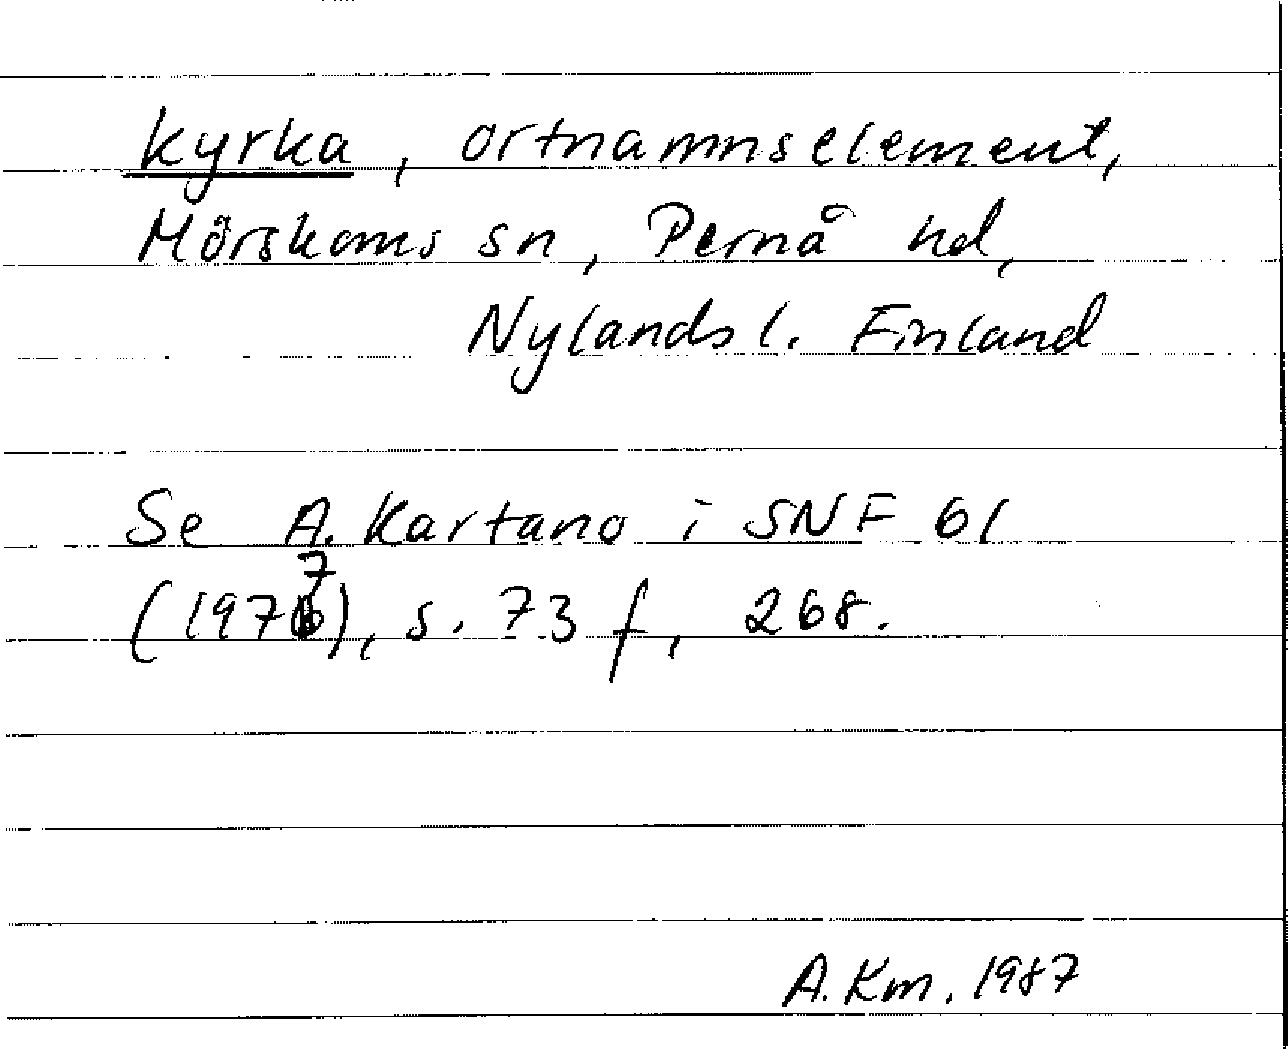 kyrka, ortnamnselement,
Mörskoms sn, Pernå hd,
Nylands l. Finland
Se A. Kartano i SNF 61
(1977), s. 73 f, 268.
A. Km. 1987